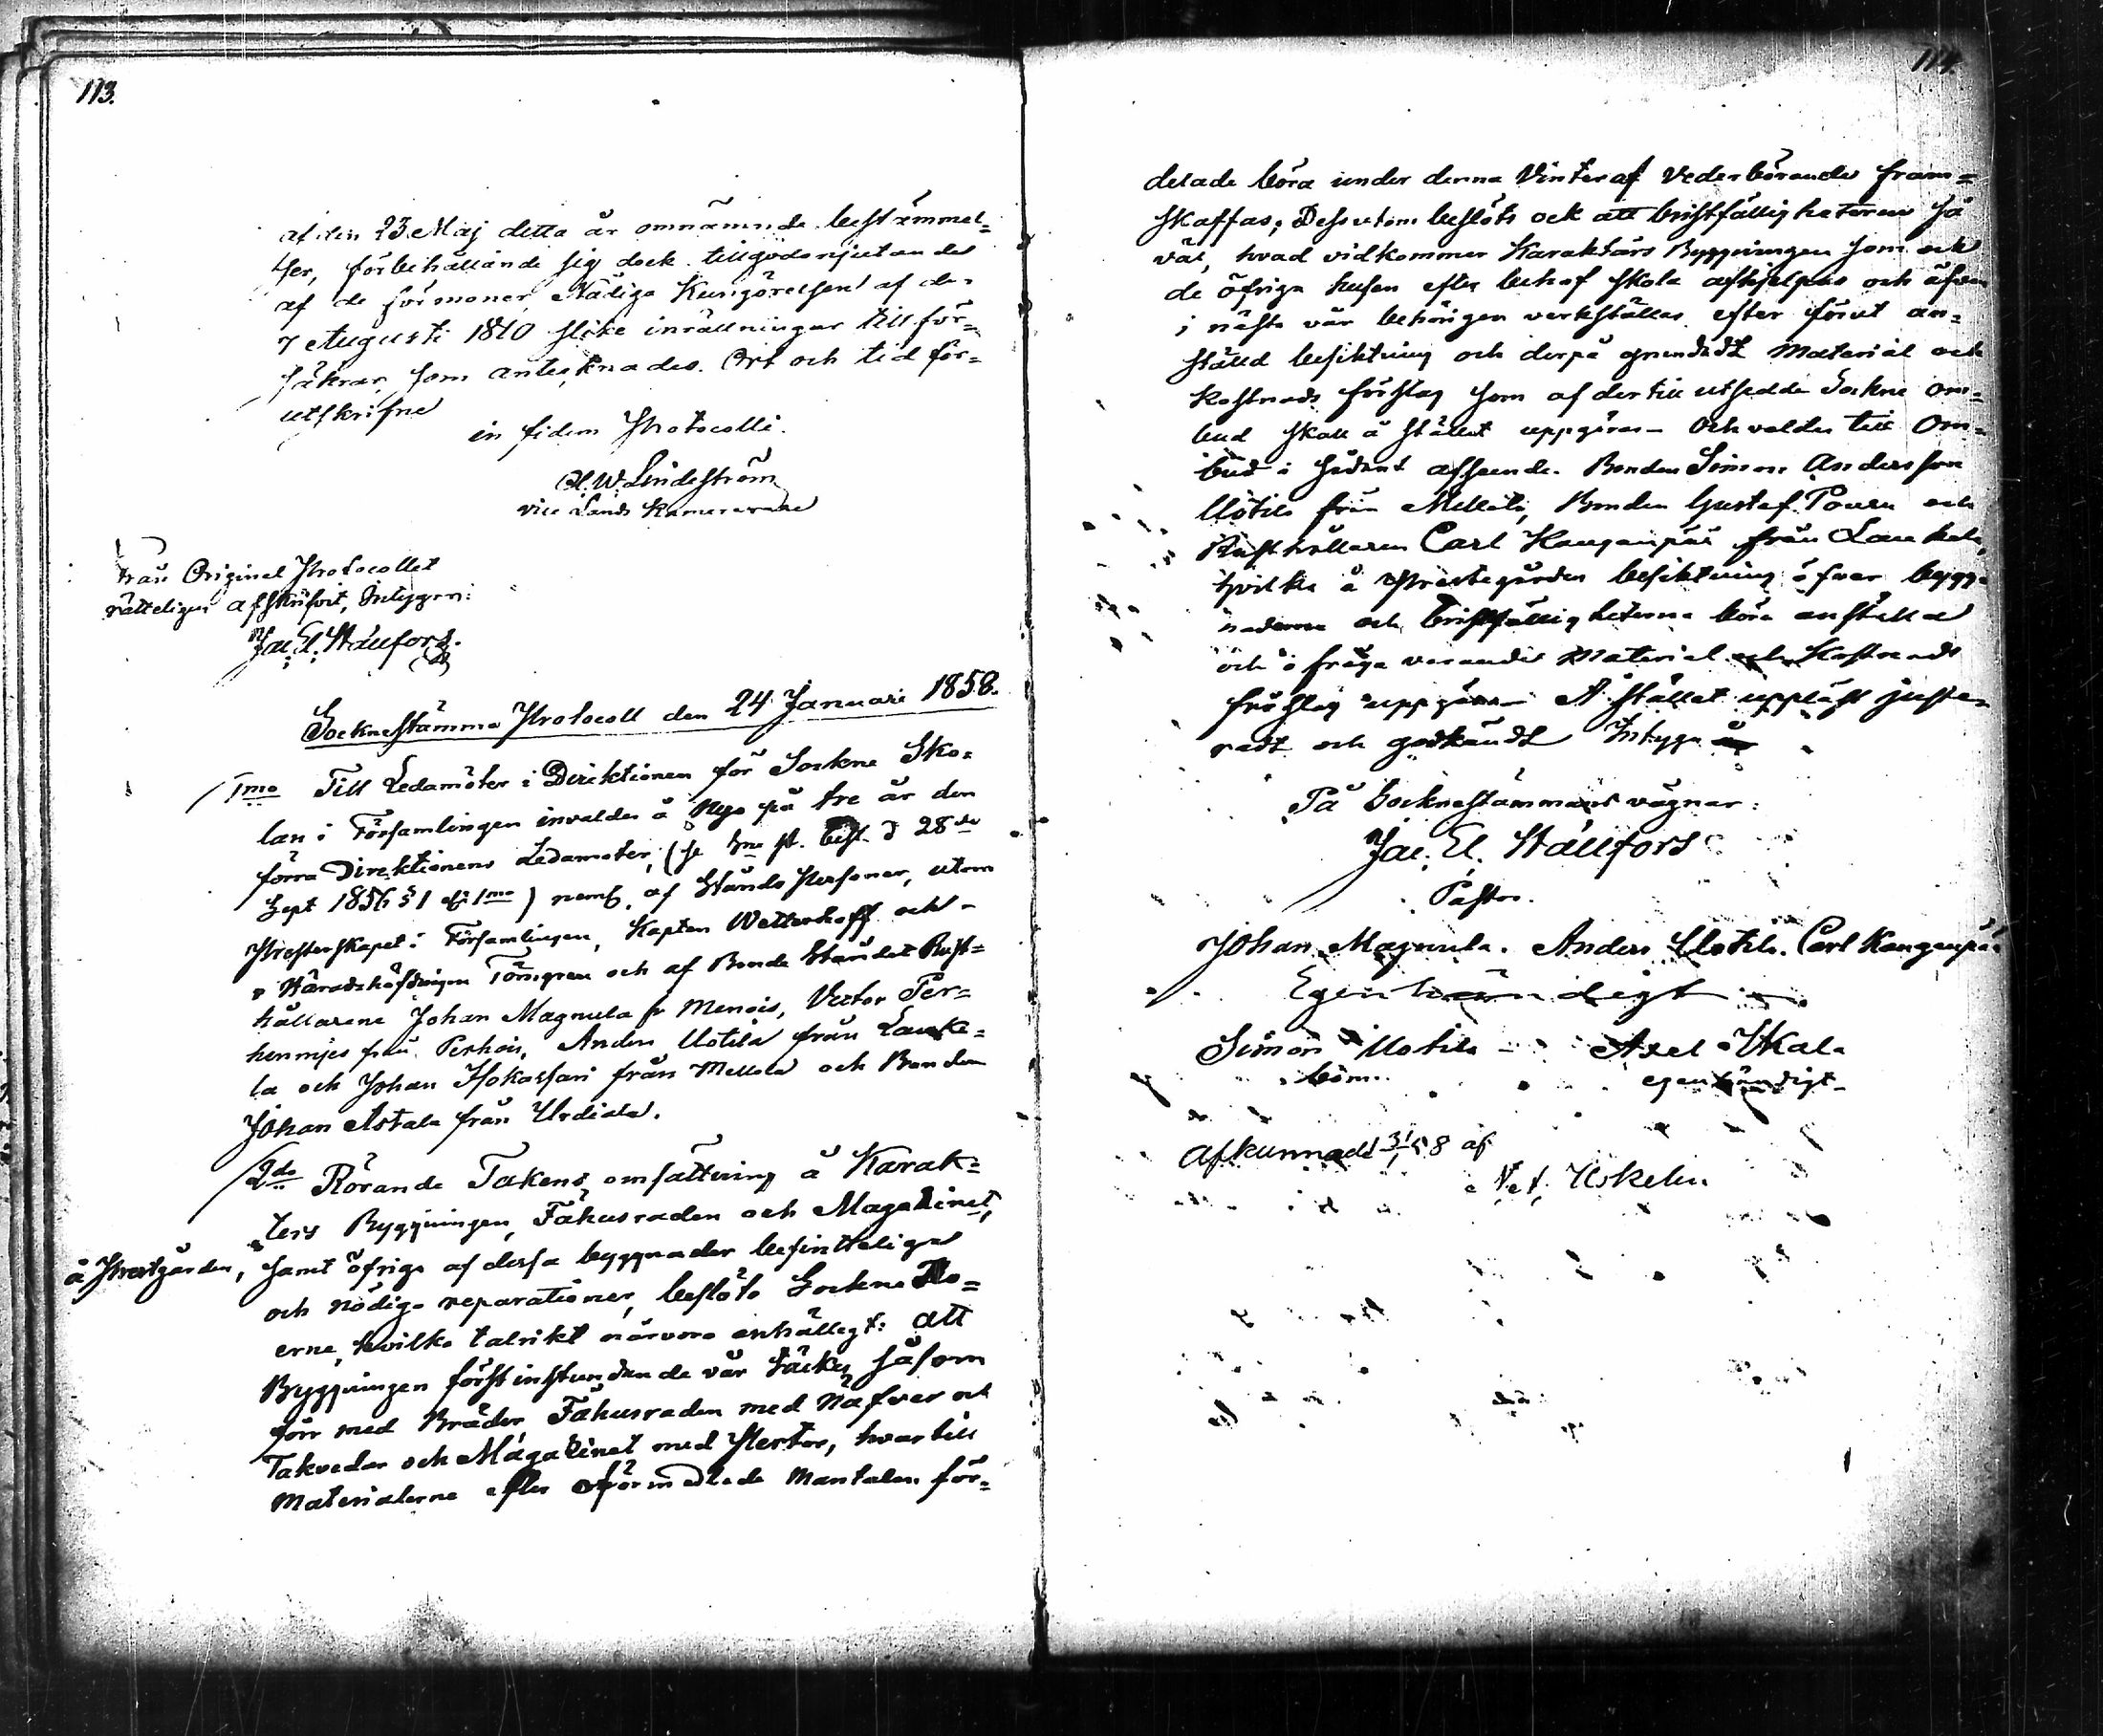 113.
af den 23 Maj detta år omnämnde bestämmel=
ser, förbehållande sig dock tillgodonjutandet
af de förmoner Nådiga Kungörelsen af den
7 Augusti 1840 slike inrättningar tillför=
säkrar, som antecknades. Ort och tid för=
utskrifne
in fidem Protocolli.
W. Lindeström
vice Lands Kamererare
Från Original Protocollet
rätteligen afskrifvit, Intygar:
Jac. El. Hällfors.
Sockne stämma Protocoll den 24 Januari 1858.
1mo Till Ledamöter i Direktionen för Sockne Sko=
lan i Församlingen invaldes å nyo på tre år den
förra Direktionens Ledamöter, (se st. d 28de
Sept 1856 § 1 1mo) neml. af Stånds Personer, utom
Presterskapet i Församlingen, Kapten Wetterhoff och
Häradshöfdingen Törngren och af Bonde Ståndet Rust=
hållarene Johan Magnula fr Menois, Victor Per=
henmjes från Perhois, Anders Uotila från Lauke=
la och Johan Isokassari från Mellola och Bonden
Johan Astala från Urdiala.
2do Rörande Takens omsättning å Karak=
ters Byggningen, Fähusraden och Magazinet,
å Prestgården, samt öfriga af dessa byggnader befintteliga
och nödiga reparationer, beslöto Sockne Bo=
erne, hvilka talrikt närvoro enhälligt: att
Byggningen förstinstundande vår täckes såsom
förr med Bräder, Fähusraden med Näfver och
Takveder och Magazinet med Pertor, hvartill
Materialerne efter oförmedlade Mantalen för=
114.
delade böra under denna Vinter af Vederbörande fram=
skaffas; Dessutom beslöts ock att bristfälligheterne så
väl, hvad vidkommer Karakters Byggningen som ock
de öfriga husen efter behof skola afhjelpas och äfven
i nästa vår behörigen verkställas efter förut an=
ställd besiktning och derpå grundadt Material och
Kostnads förslag som af dertill utsedde Sockne om=
bud skall å stället uppgöras – Och valdes till Om=
bud i sådant afseende Bonden Simon Andersson
Uotila från Mellola, Bonden Gustaf Pouru och
Rusthållaren Carl Kanganpää från Laukela,
hvilka å Prestegården besiktning öfver bygg=
naderna och bristfälligheterna böra anställa
och i fråga varande Material och Kostnads
förslag uppgöra – Å stället uppläst juste=
radt och godkändt Intyga
På Socknestämmans vägnar:
Jac. El. Hällfors
Pastor.
Johan Magnula. Anders Uotila. Carl Kangenpää
Egenhändigt
Simon Uotila – Axel Ukala
bom. egenhändigt
Afkunnadt 31/1 58 af
Uskelin